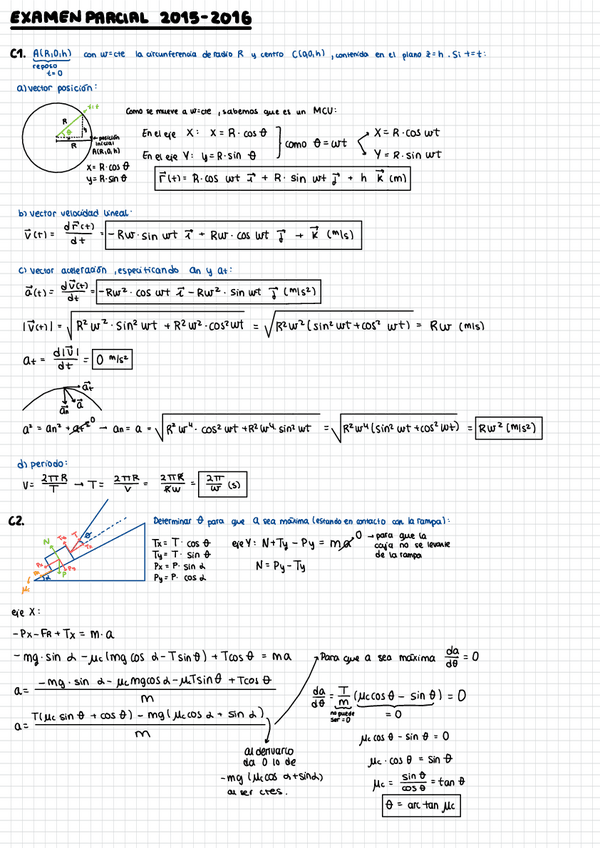 EXAMEN PARCIAL 2015-2016
C1. A(R,0,h) con w=cte la circunferencia de radio R y centro C(0,0,h), contenida en el plano z=h. Si t=t:
reposo
t=0
a) vector posición:
Como se mueve a w=cte, sabemos que es un MCU:
t
R
θ
y
x
R
posición
inicial
A(R,0,h)
x=R·cos θ
y=R·sin θ
En el eje X: x = R·cos θ
En el eje Y: y = R·sin θ
como θ = wt
X = R·cos wt
Y = R·sin wt
r⃗(t) = R·cos wt i⃗ + R·sin wt j⃗ + h k⃗ (m)
b) vector velocidad lineal:
v⃗(t) = dr⃗(t)/dt = -Rw·sin wt i⃗ + Rw·cos wt j⃗ + k⃗ (m/s)
c) vector aceleración, especificando an y at:
a⃗(t) = dv⃗(t)/dt = -Rw²·cos wt i⃗ - Rw²·sin wt j⃗ (m/s²)
|v⃗(t)| = √(R²w²·sin² wt + R²w²·cos² wt) = √(R²w²(sin² wt + cos² wt)) = Rw (m/s)
at = d|v⃗|/dt = 0 m/s²
a⃗t
a⃗n
a⃗
a² = an² + at² 0 → an = a = √(R²w⁴·cos² wt + R²w⁴ sin² wt) = √(R²w⁴(sin² wt + cos² wt)) = Rw² (m/s²)
d) periodo:
V = 2πR/T → T = 2πR/V = 2πR/Rw = 2π/w (s)
C2. Determinar θ para que a sea máxima (estando en contacto con la rampa):
N
Ty
T
θ
Tx
Px
Py
P
α
μc
Tx = T·cos θ
Ty = T·sin θ
Px = P·sin α
Py = P·cos α
eje Y: N+Ty-Py = ma 0 → para que la
caja no se levante
de la rampa
N = Py-Ty
eje X:
-Px-FR+Tx = m·a
-mg·sin α - μc(mg cos α - T sin θ) + T cos θ = ma
a = (-mg·sin α - μc mg cos α - μT sin θ + T cos θ)/m
a = (T(μc sin θ + cos θ) - mg(μc cos α + sin α))/m
al derivarlo
da 0 lo de
-mg (μc cos α + sin α)
al ser ctes.
Para que a sea máxima da/dθ = 0
da/dθ = T/m (μc cos θ - sin θ) = 0
no puede
ser = 0
= 0
μc cos θ - sin θ = 0
μc·cos θ = sin θ
μc = sin θ/cos θ = tan θ
θ = arc tan μc